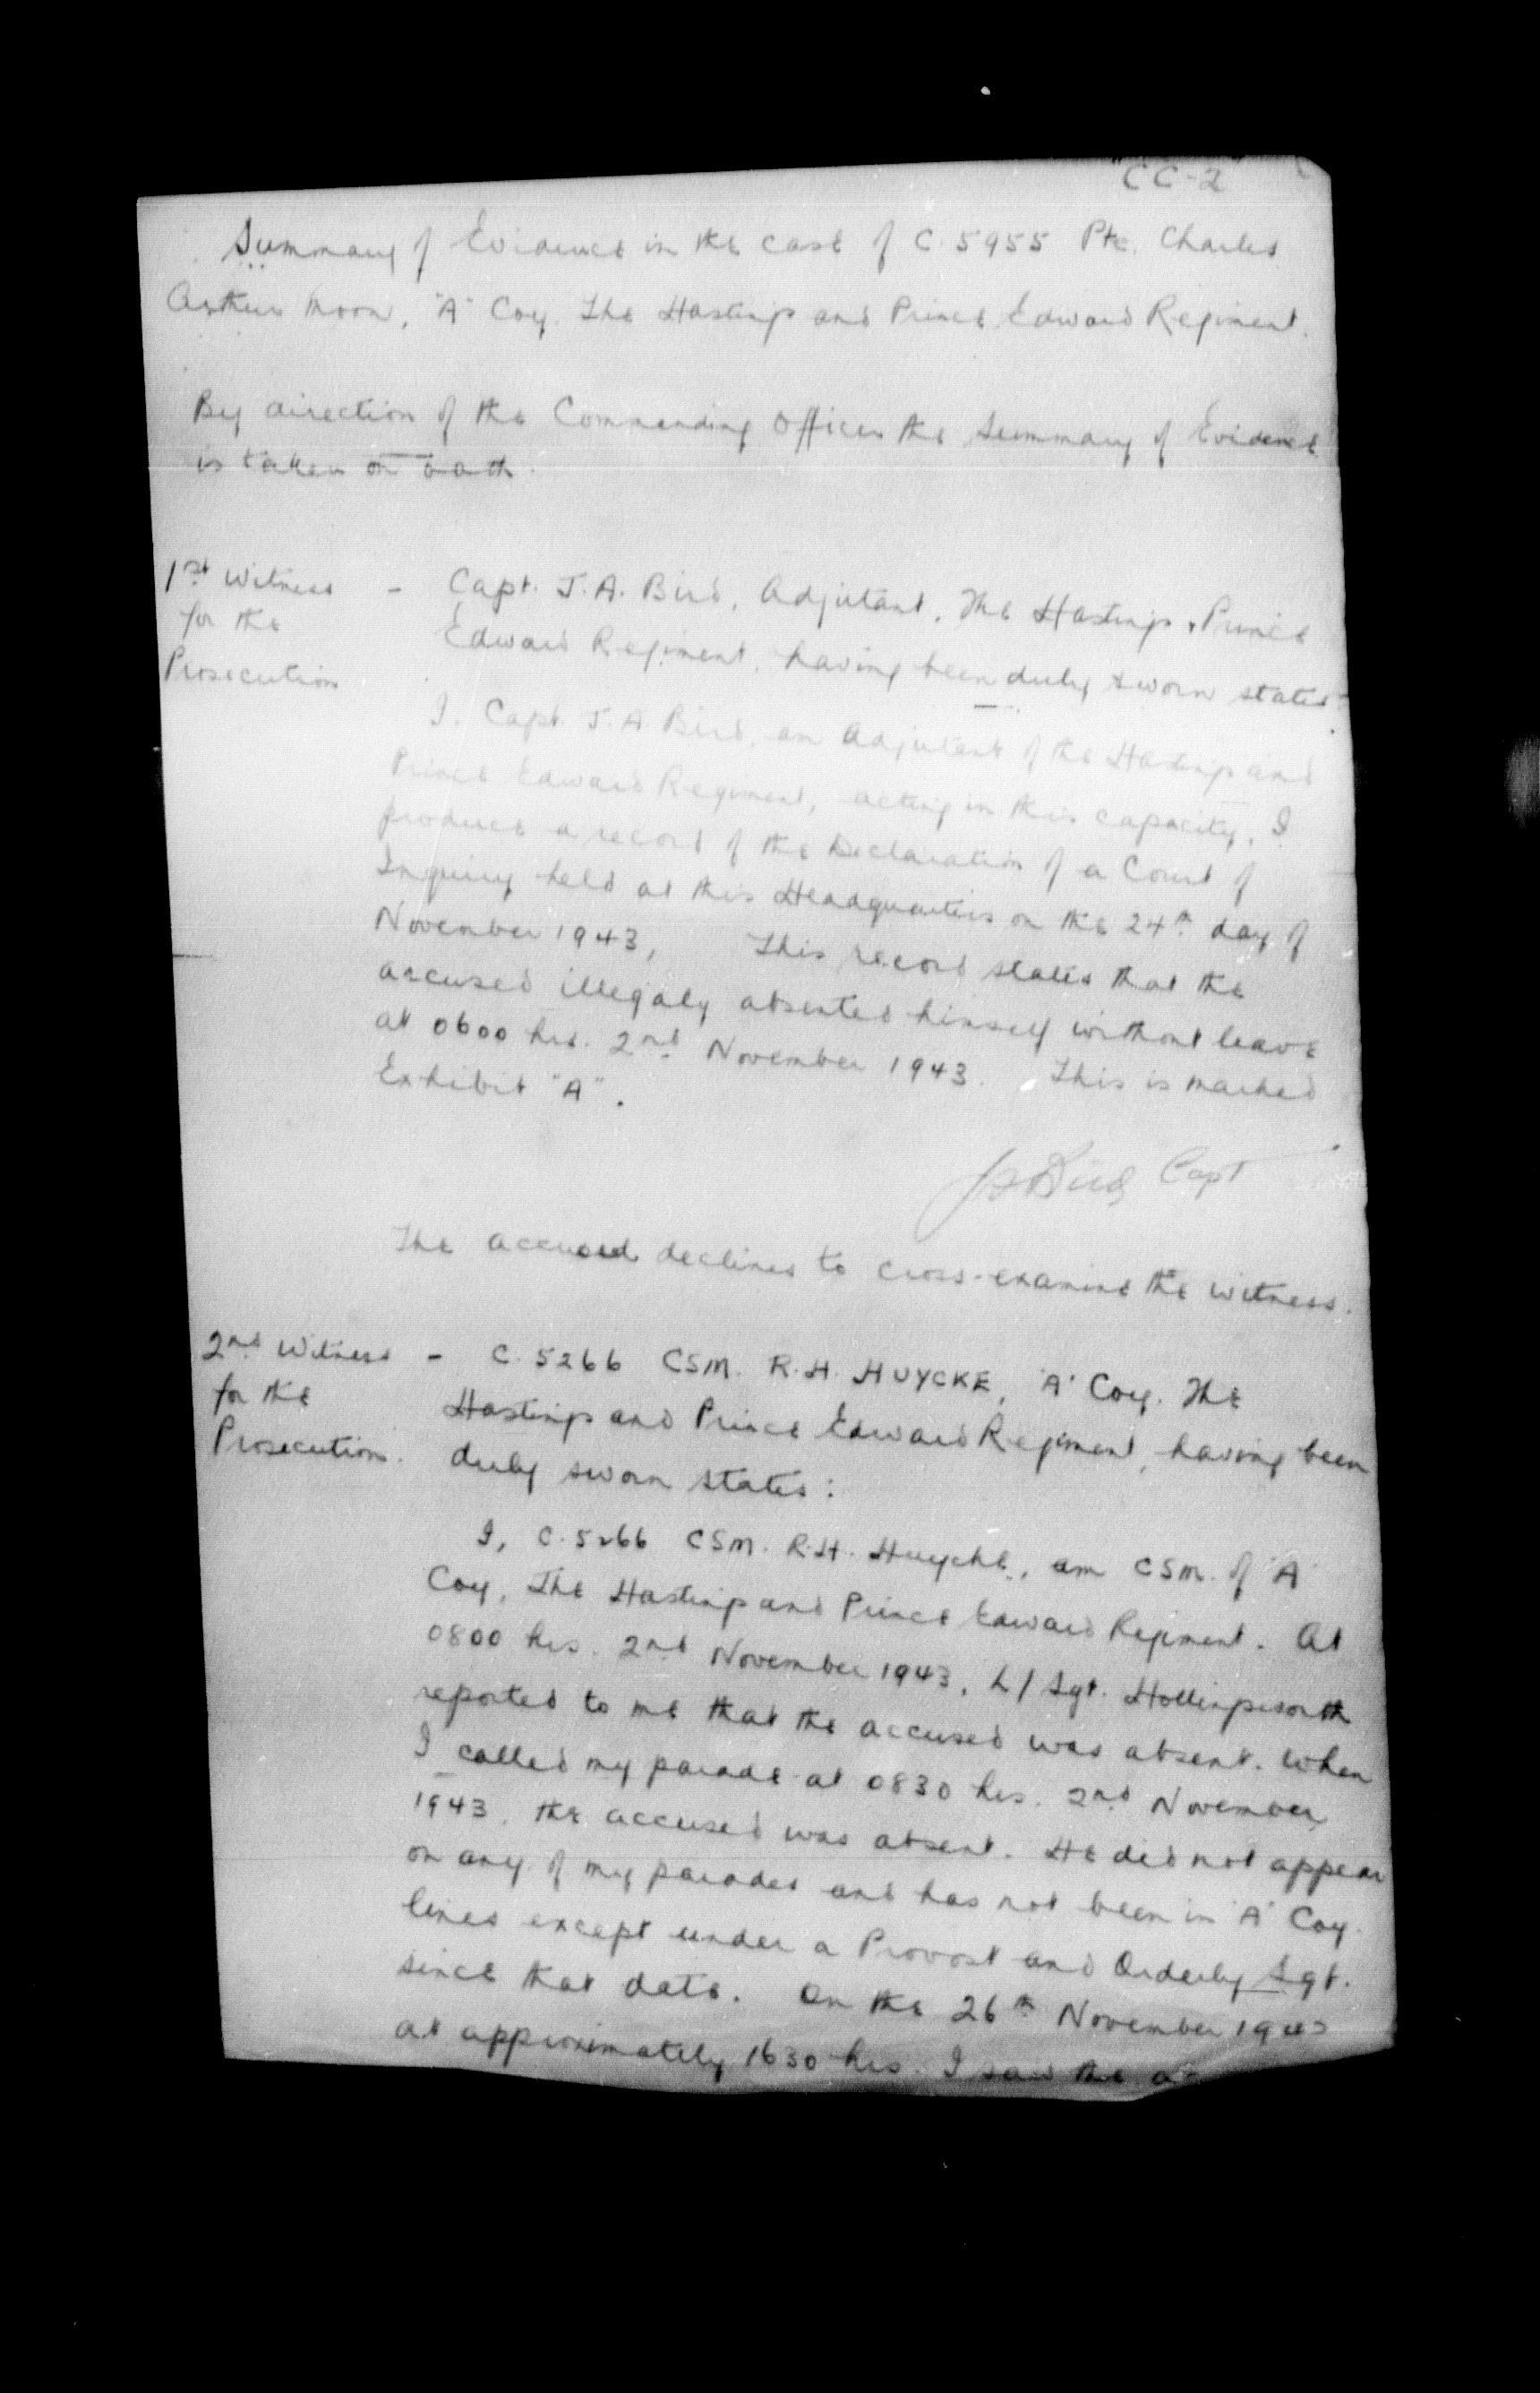 "CC-2"
Summary of Evidence in the case of C.5955 Pte. Charles
Arthur Moon, "A" Coy. The Hastings and Prince Edward Regiment.
By direction of the Commanding Officer the Summary of Evidence
is taken on oath.
1st Witness - Capt. J.A. Bird, Adjutant, The Hastings & Prince
for the Edward Regiment, having been duly sworn states:
Prosecution
I, Capt. J.A. Bird, am Adjutant of the Hastings and
Prince Edward Regiment, acting in this capacity, I
produce a record of the Declaration of a Court of
Inquiry held at this Headquarters on the 24th day of
November 1943, This record states that the
accused illegaly absented himself without leave
at 0600 hrs. 2nd November 1943. This is marked
Exhibit "A".
JA Bird Capt
The accused declines to cross-examine the witness.
2nd Witness - C.5266 CSM. R.H. HUYCKE, 'A' Coy. The
for the Hastings and Prince Edward Regiment, having been
Prosecution. duly sworn states:
I, C.5266 CSM. R.H. Huycke, am CSM. of 'A'
Coy, The Hastings and Prince Edward Regiment. At
0800 hrs. 2nd November 1943, L/Sgt. Hollingsworth
reported to me that the accused was absent. When
I called my parade at 0830 hrs. 2nd November
1943, the accused was absent. He did not appear
on any of my parades and has not been in 'A' Coy.
lines except under a Provost and Orderly Sgt.
since that date. On the 26th November 1943
at approximately 1630 hrs. I saw the